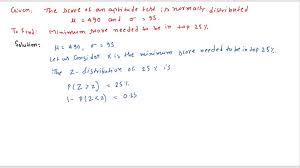 Given: The score of an aptitude test is normally distributed
μ = 490 and σ = 95
To Find: Minimum score needed to be in top 25%
Solution:
μ = 490, σ = 95
Let us consider x is the minimum score needed to be in top 25%
The Z-distribution of 25% is
P(Z > z) = 25%
1- P(Z < z) = 0.25